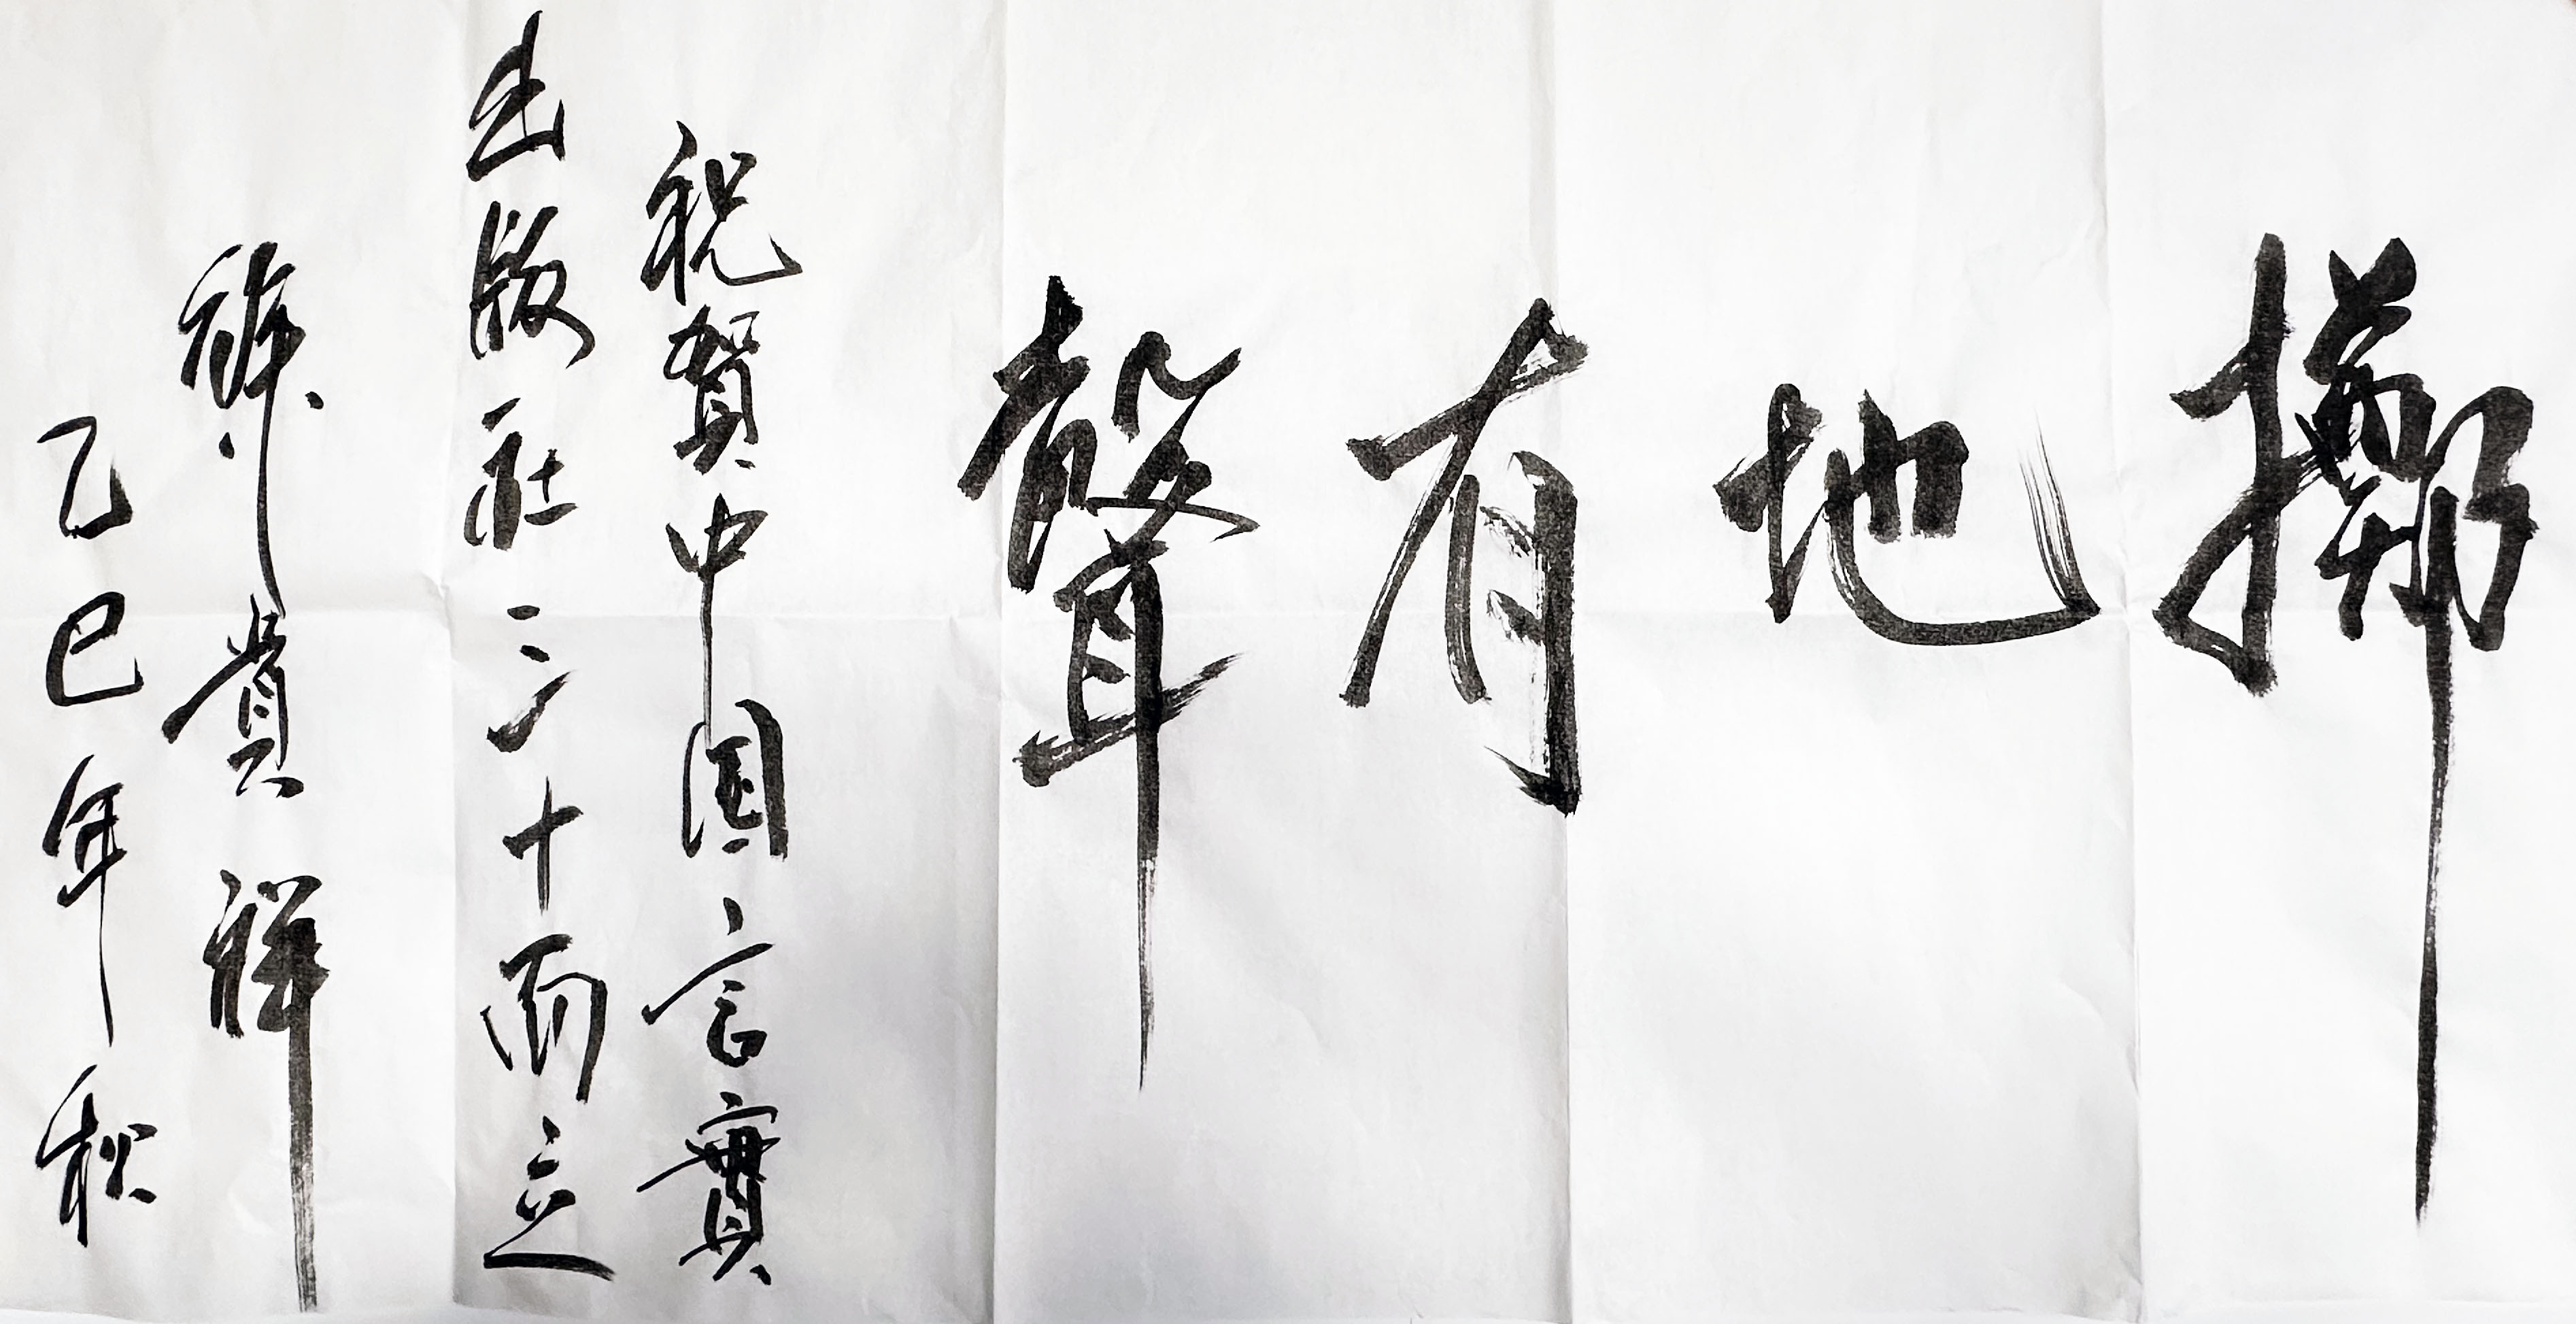 擲地有聲
祝賀中國言實
出版社三十而立
貴祥
乙巳年秋